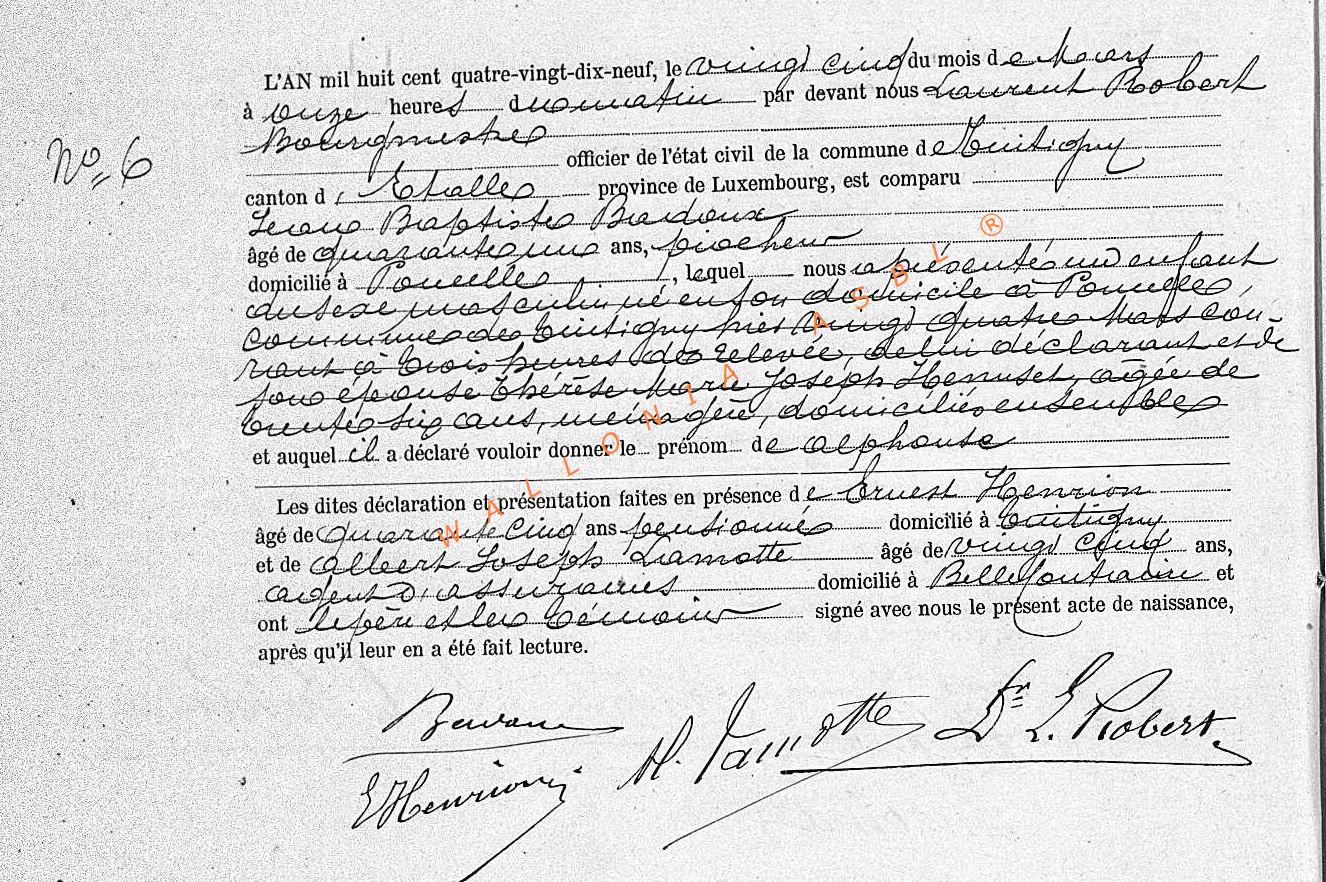 L'AN mil huit cent quatre-vingt-dix-neuf, le vingt cinq du mois de Mars
à onze heures du matin par devant nous Laurent Robert
Bourgmestre
officier de l'état civil de la commune de Tintigny
N° 6
canton d' Etalle province de Luxembourg, est comparu
Jean Baptiste
âgé de quarante un ans, piocheur
domicilié à Poncelle, lequel nous a présenté un enfant
du sexe masculin né en son domicile à Poncelle,
commune de Tintigny hier vingt quatre Mars cou-
rant à trois heures de relevée, de lui déclarant et de
son épouse Thérèse Marie Joseph Henuset, agée de
trente six ans, ménagère, domiciliés ensemble
et auquel il a déclaré vouloir donner le prénom de Alphonse
Les dites déclaration et présentation faites en présence de Ernest Henrion
âgé de quarante cinq ans pensionné domicilié à Tintigny
et de Albert Joseph Lamotte âgé de vingt cinq ans,
agent d'assurances domicilié à Bellefontaine et
ont le père et les témoins signé avec nous le présent acte de naissance,
après qu'il leur en a été fait lecture.
A. Lamotte Dr L. Robert
E Henrion
WALLONIA ASBL ®